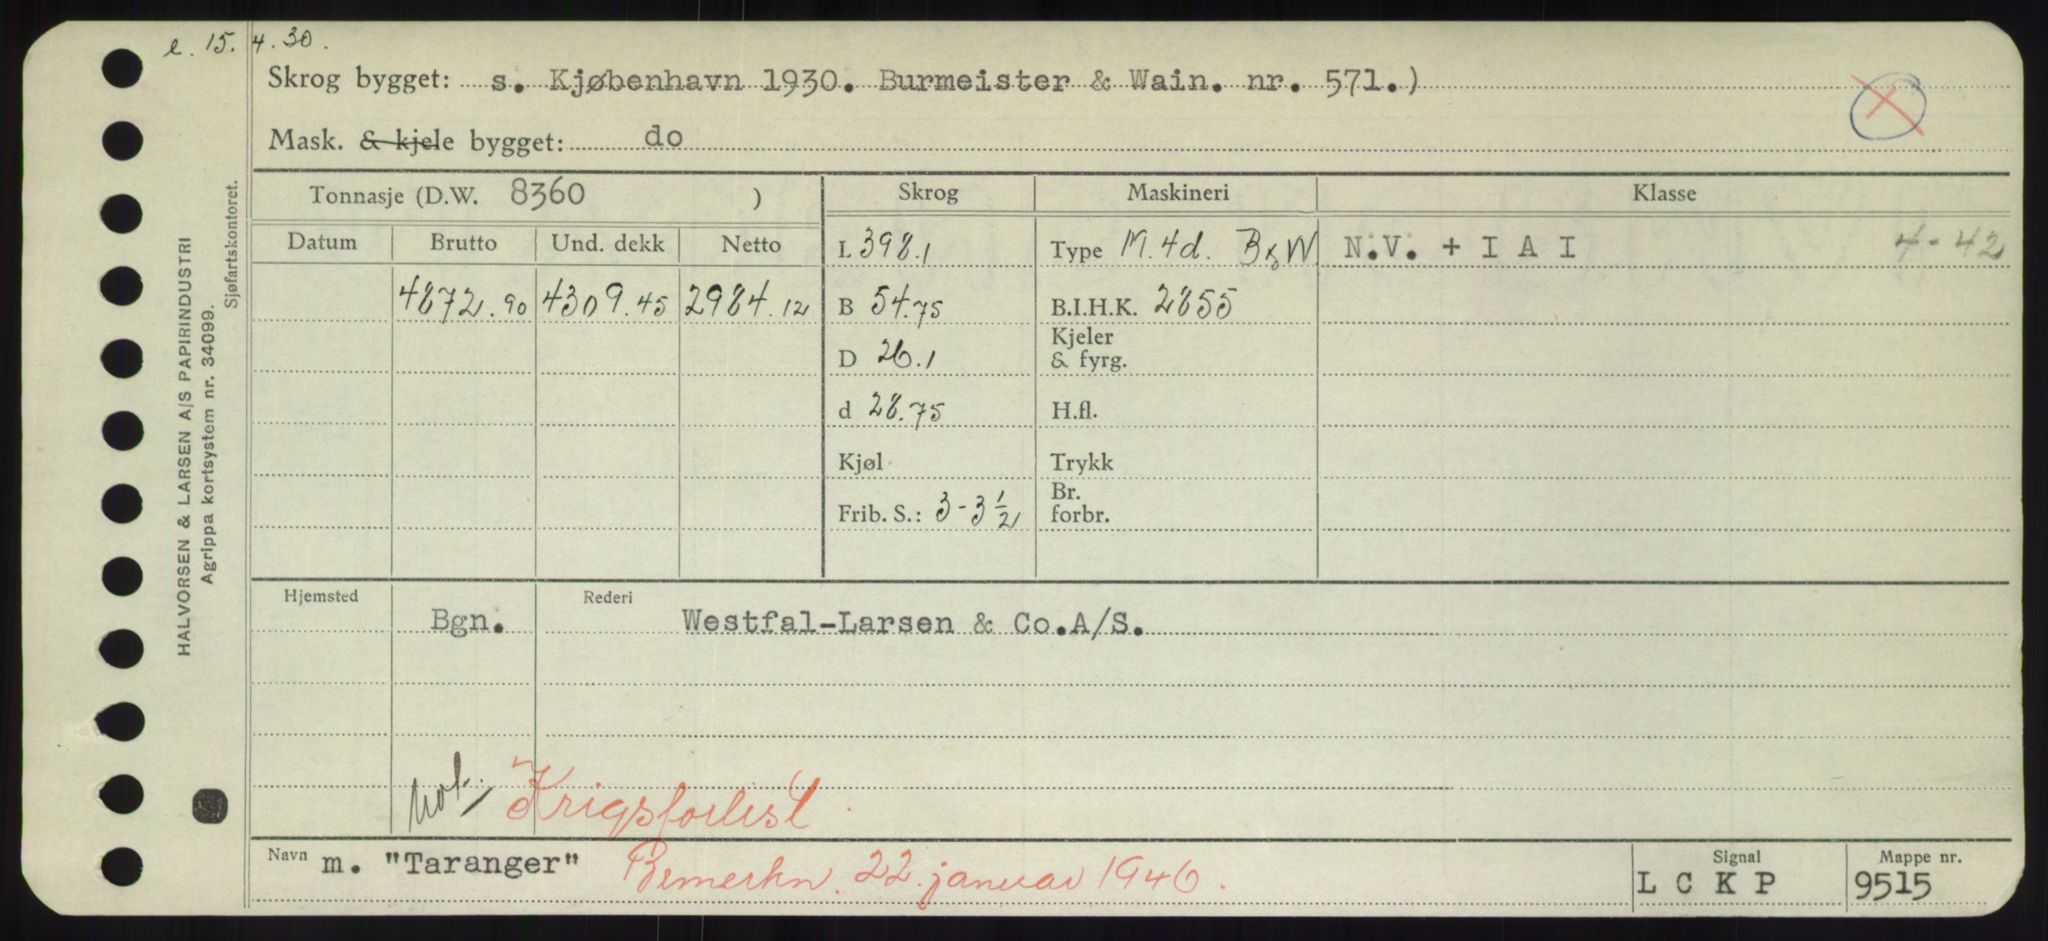 e. 15. 4. 30.
Skrog bygget: s. Kjøbenhavn 1930. Burmeister & Wain. nr. 571.)
Mask. & kjele bygget: do
Tonnasje (D.W. 8360 ) Skrog Maskineri Klasse
Datum Brutto Und. dekk Netto L 398.1 Type M. 4d. B&W N.V. + I A I 4-42
4872.90 4309.45 2984.12 B 54.75 B.I.H.K. 2855
D 26.1 Kjeler & fyrg.
d 28.75 H.fl.
Kjøl Trykk
Frib. S.: 3-3 1/2 Br. forbr.
Hjemsted Bgn. Rederi Westfal-Larsen & Co.A/S.
not. Krigsforlist.
Navn m. "Taranger" Bemerkn. 22. januar 1946. Signal L C K P Mappe nr. 9515
HALVORSEN & LARSEN A/S PAPIRINDUSTRI
Agrippa kortsystem nr. 34099.
Sjøfartskontoret.